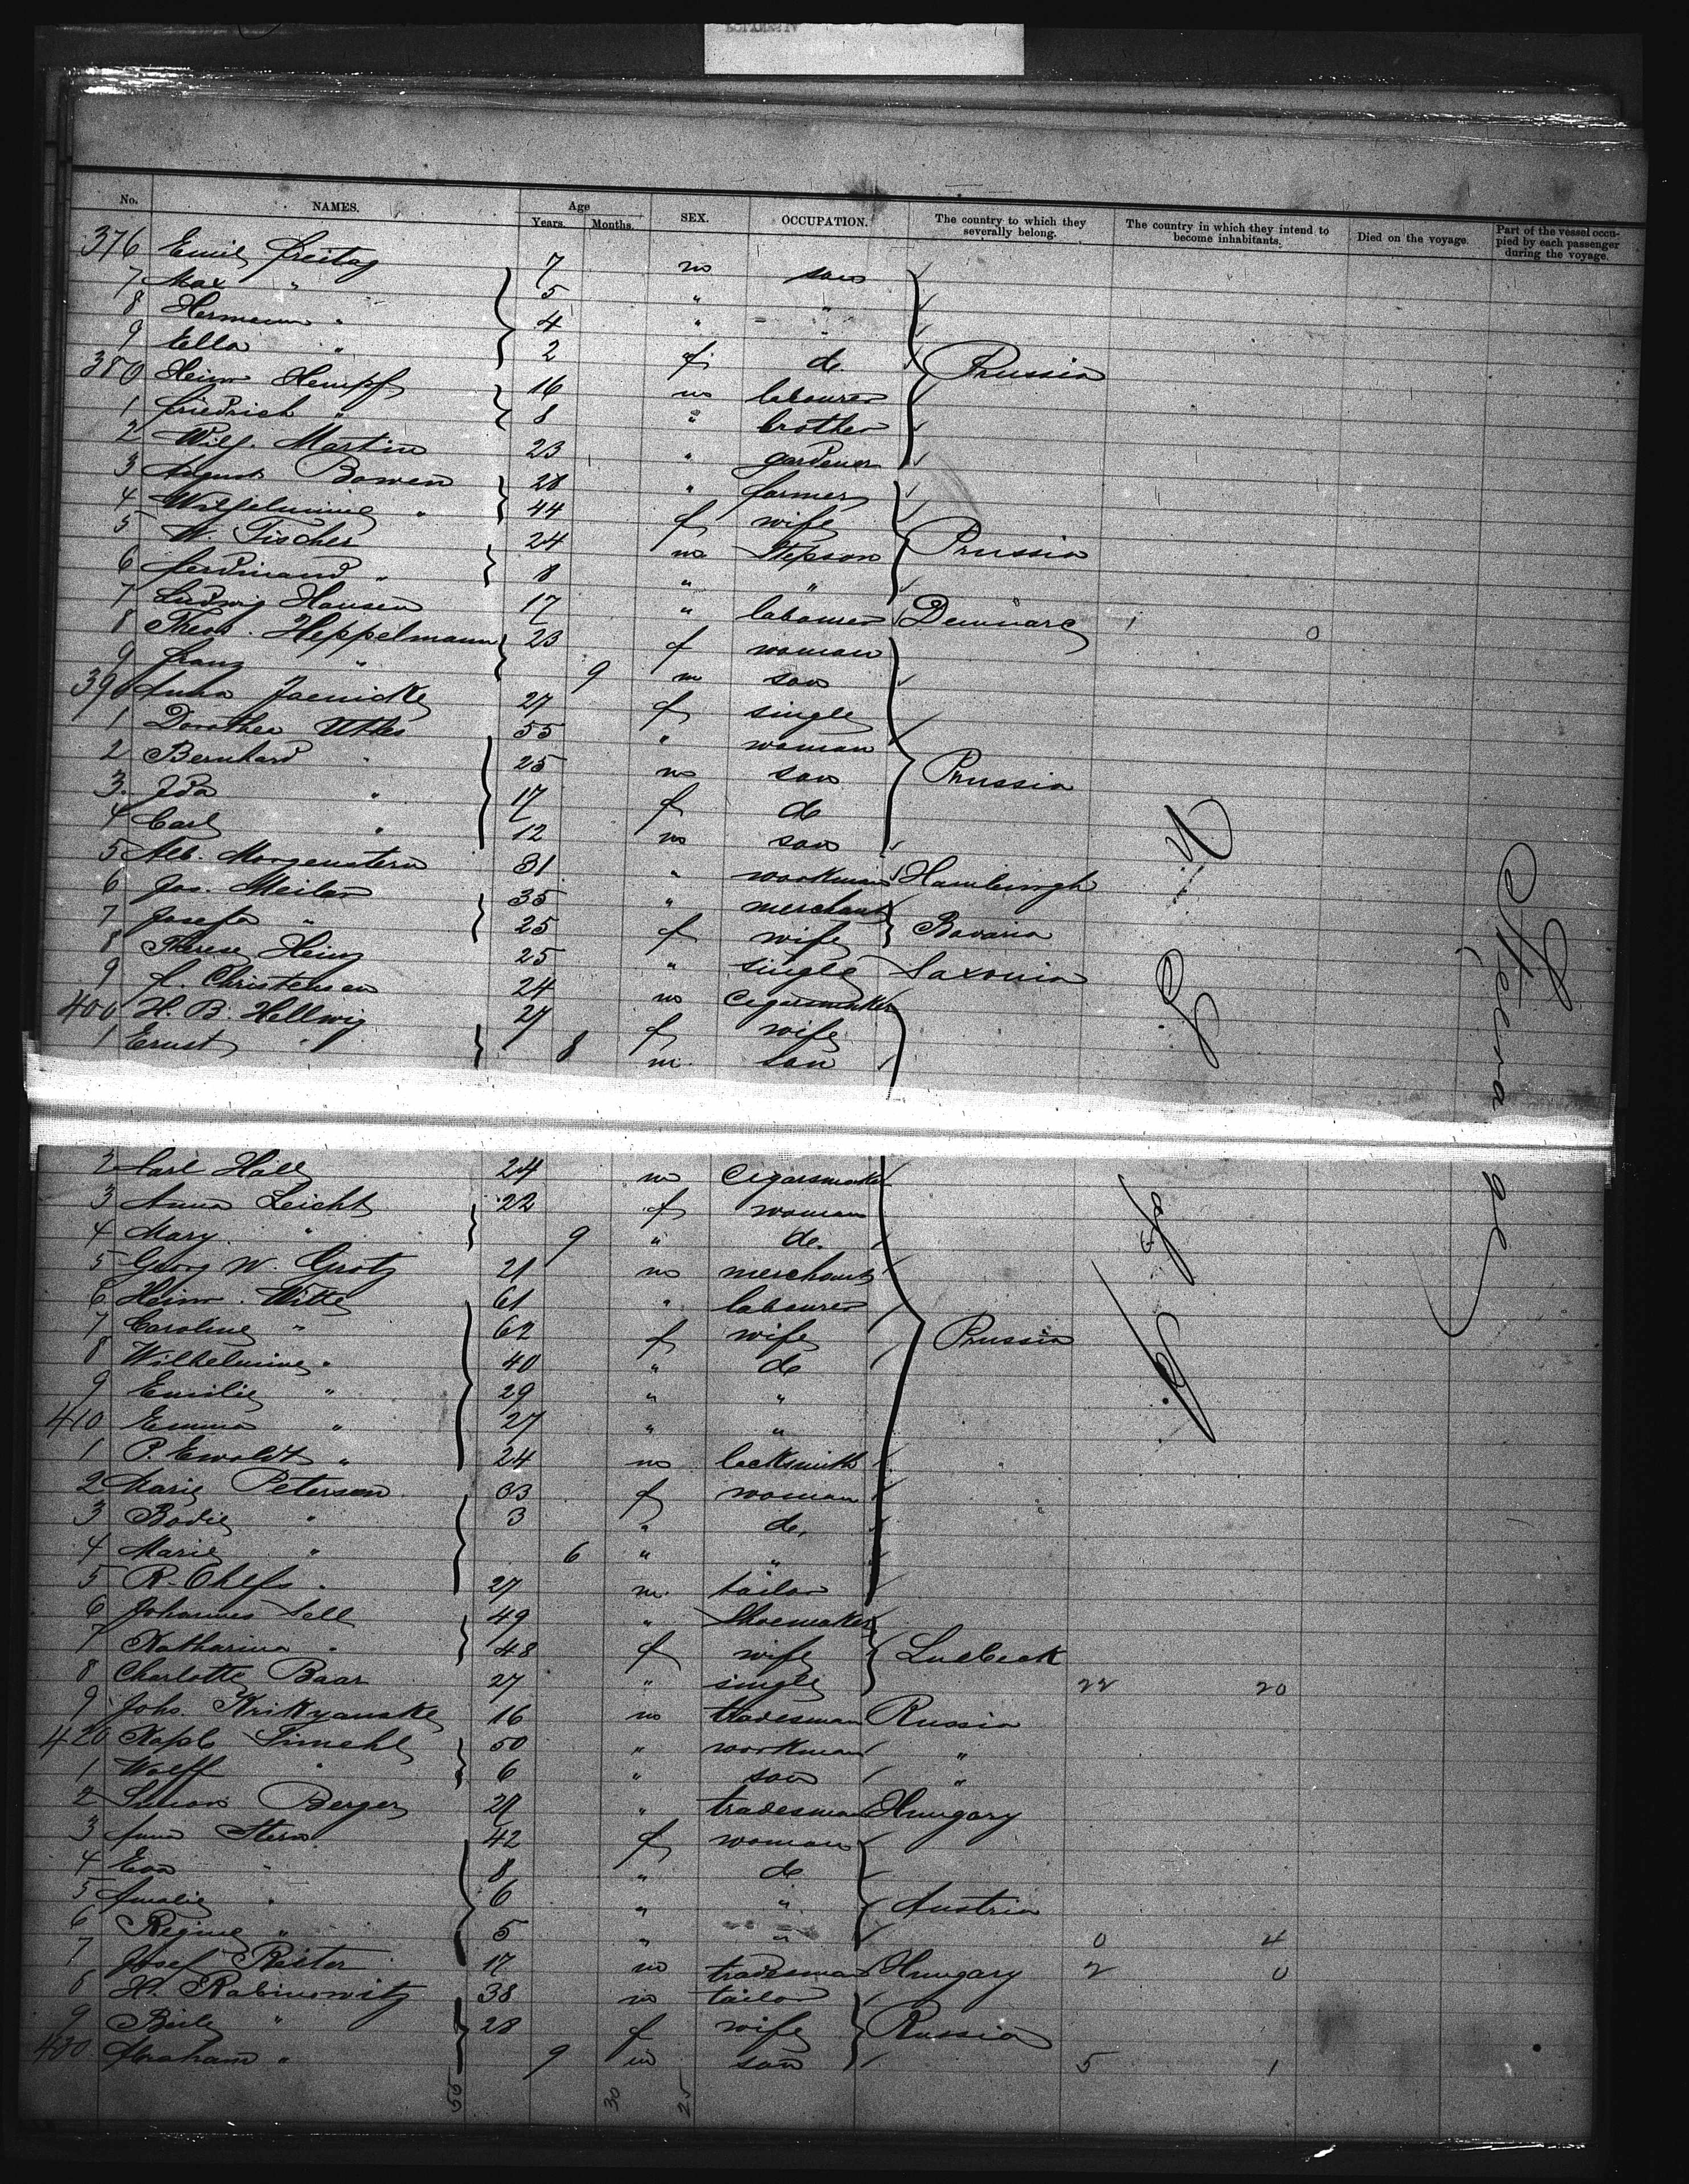 No. NAMES. Age Years. Months. SEX. OCCUPATION. The country to which they severally belong. The country in which they intend to become inhabitants. Died on the voyage. Part of the vessel occupied by each passenger during the voyage.
376 Emil Freitag 7 m son
7 Max " 5 " "
8 Hermann " 4 " "
9 Ella " 2 f do. Prussia
380 Heinr Hempf 16 m labourer
1 Friedrich " 8 " brother
2 Wilh. Martin 23 " gardener
3 August Bowen 28 " farmer
4 Wilhelmine " 44 f wife
5 W. Fischer 24 m Stepson Prussia
6 Ferdinand " 8 " "
7 Ludwig Hansen 17 " labourer Denmark 1 0
8 Theod. Heppelmann 23 f woman
9 Franz " 9 m son
390 Anna Jaenicke 27 f single
1 Dorothea Uthes 55 " woman
2 Bernhard " 25 m son Prussia
3 Ida " 17 f do
4 Carl " 12 m son
5 Alb. Morgenstern 31 " workman Hamburgh
6 Jos. Meiler 35 " merchant
7 Josefa " 25 f wife Bavaria
8 Therese Heinz 25 " single Saxonia
9 f. Christensen 24 m Cigarsmaker
400 H. B. Hellwig 27 f wife
1 Ernst " 8 m. son
2 Carl Hall 24 m Cigarsmaker
3 Anna Leicht 22 f woman
4 Mary " 9 " do.
5 Georg W. Grotz 21 m merchant
6 Heinr. Witte 61 " labourer
7 Caroline " 62 f wife Prussia
8 Wilhelmine " 40 " do
9 Emilie " 29 " "
410 Emma " 27 " "
1 P. Ewoldt " 24 m locksmith
2 Marie Peterson 33 f woman
3 Bodil " 3 " do.
4 Marie " 6 " "
5 R. 27 m. tailor
6 Johannes Sell 49 " Shoemaker
7 Katharina " 48 f wife Luebeck
8 Charlotte Baar 27 " single 22 20
9 Johs. 16 m tradesman Russia
420 50 " workman "
1 Wolff " 6 " son "
2 Simon Berger 27 " tradesman Hungary
3 Anna Stern 42 f woman
4 Eva " 8 " do
5 Amalie " 6 " " Austria
6 Regine " 5 " " 0 4
7 Josef Reiter 17 m tradesman Hungary 2 0
8 H. Rabinowitz 38 m tailor
9 Beile " 28 f wife Russia
430 Abraham " 9 m son 5 1
55 30 25
U. S. of A.
Steerage